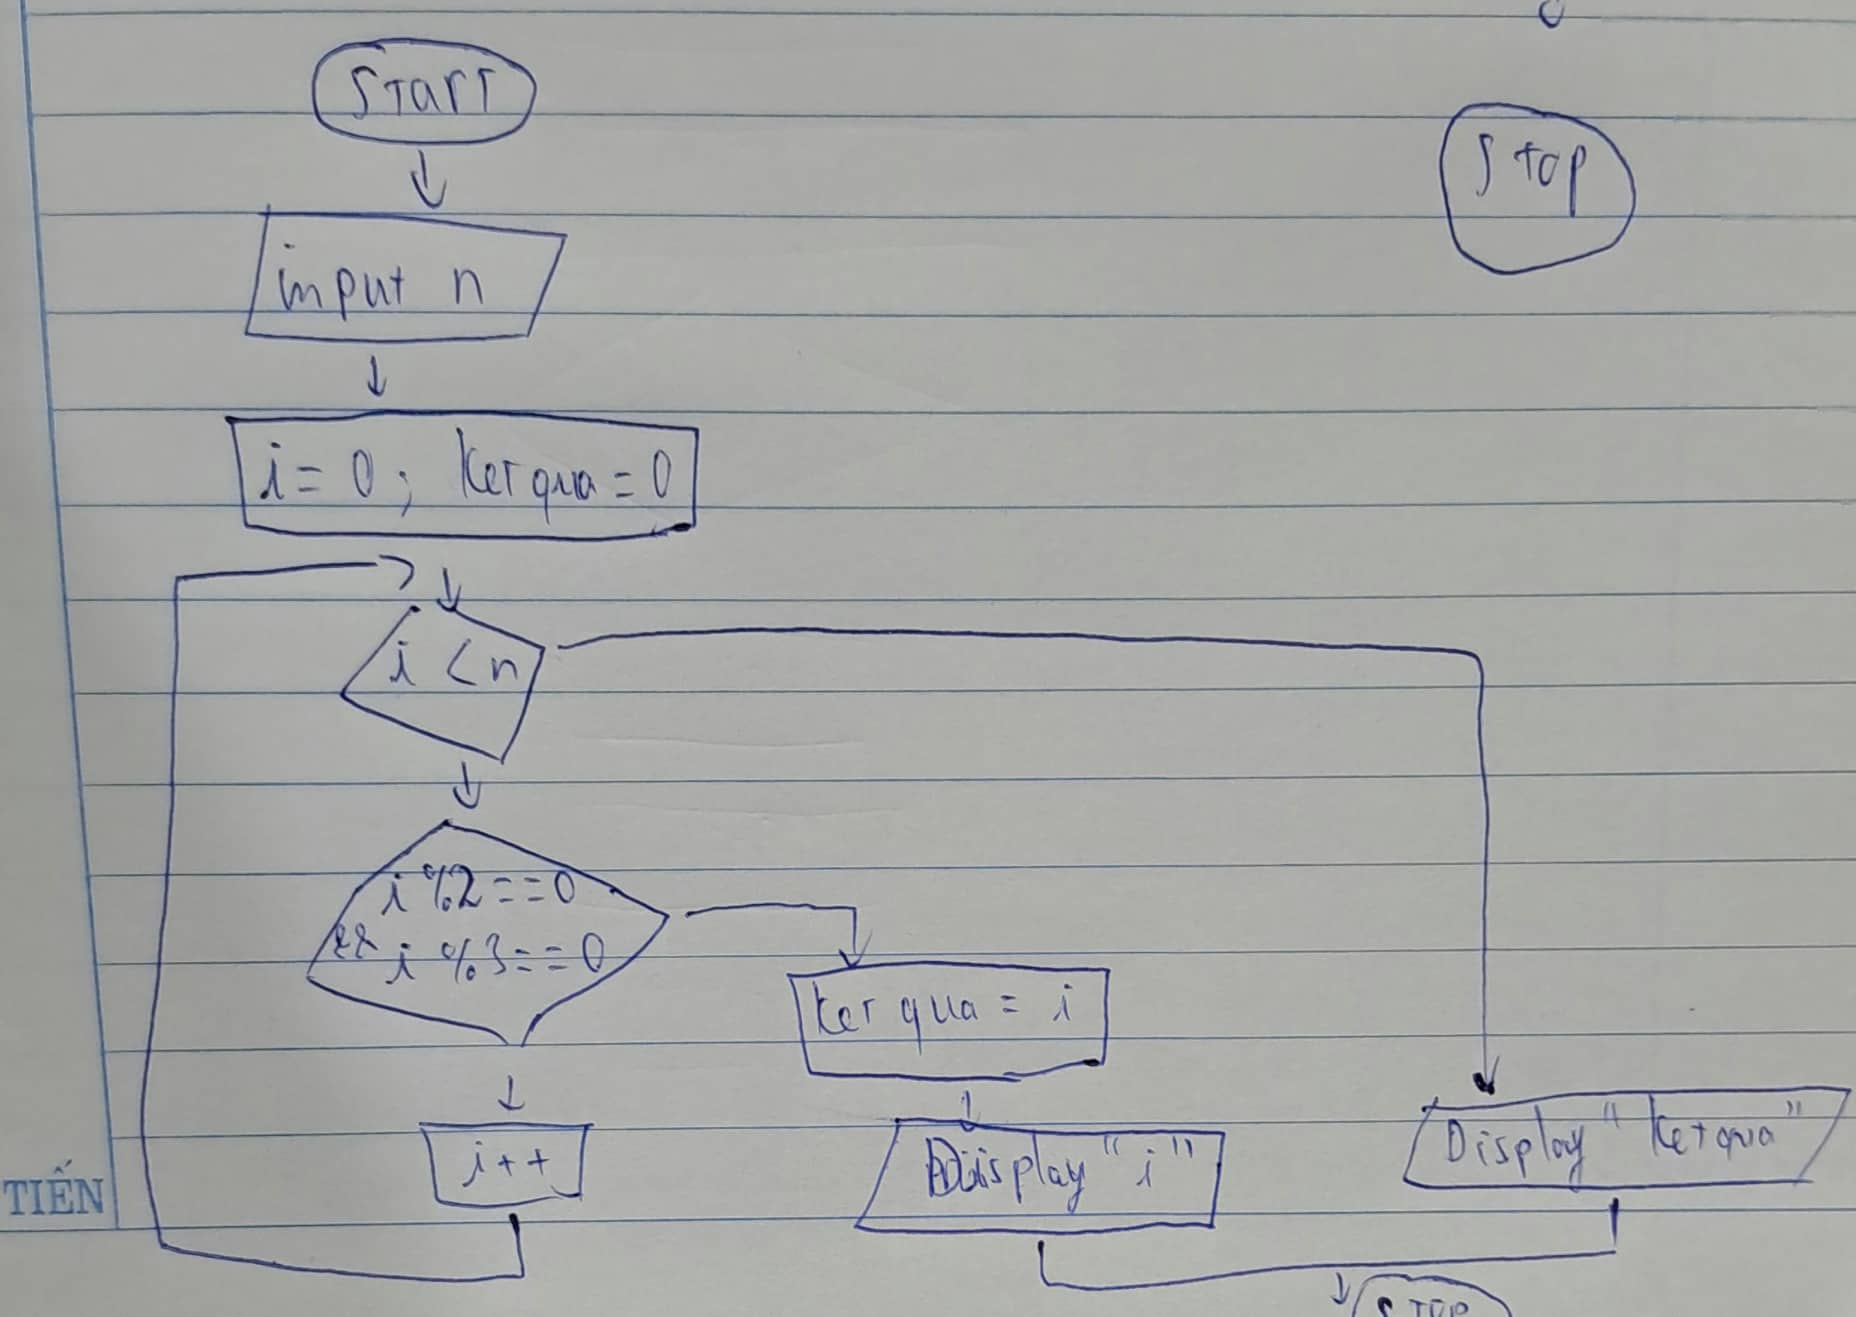 START
Stop
input n
i = 0; Ket qua = 0
i < n
i %2 == 0
&& i %3 == 0
Ket qua = i
i++
Display "i"
Display "Ket qua"
TIẾN
STOP